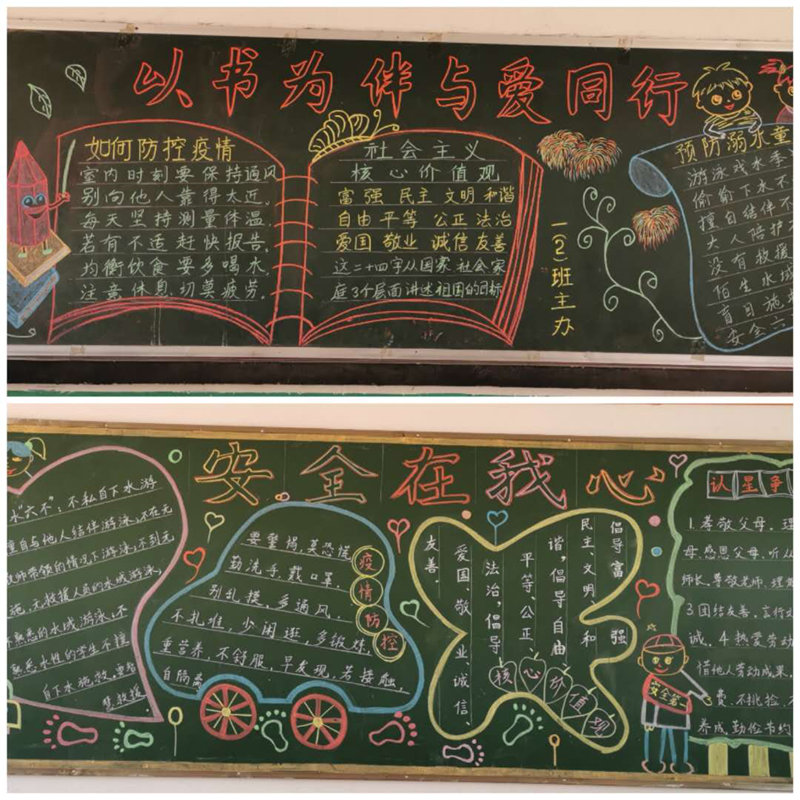 以书为伴与爱同行
如何防控疫情
室内时刻要保持通风
别向他人靠得太近.
每天坚持测量体温.
若有不适赶快报告.
均衡饮食要多喝水.
注意休息.切莫疲劳.
社会主义
核心价值观
富强 民主 文明 和谐
自由 平等 公正 法治
爱国 敬业 诚信 友善
这二十四字从国家社会家
庭3个层面讲述祖国的目标
一(2)班主办
预防溺水童
游泳戏水季
偷偷下水不
擅自结伴不
大人陪护
没有救援
陌生水域
盲目施
安全六
安全在我心
水"六不":不私自下水游
擅自与他人结伴游泳,不在无
教师带领的情况下游泳,不到无
施.无救援人员的水域游泳,
不熟悉的水域游泳,不
熟悉水性的学生不擅
自下水施救,要智
慧救援.
疫情防控
要警惕,莫恐慌
勤洗手,戴口罩,
别乱摸,多通风,
不扎堆,少闲逛,多锻炼,
重营养,不舒服,早发现,若接触,
自隔离
倡导富强
民主、文明、和
谐,倡导自由
平等、公正、
法治,倡导
爱国、敬业、诚信、
友善.
核心价值观
认星争
1.孝敬父母,理
母.感恩父母,听从
师长.尊敬老师,理
3团结友善,言行
诚.4热爱劳动
惜他人劳动成果,
费,不挑捡,
养成,勤俭节约
安全第一